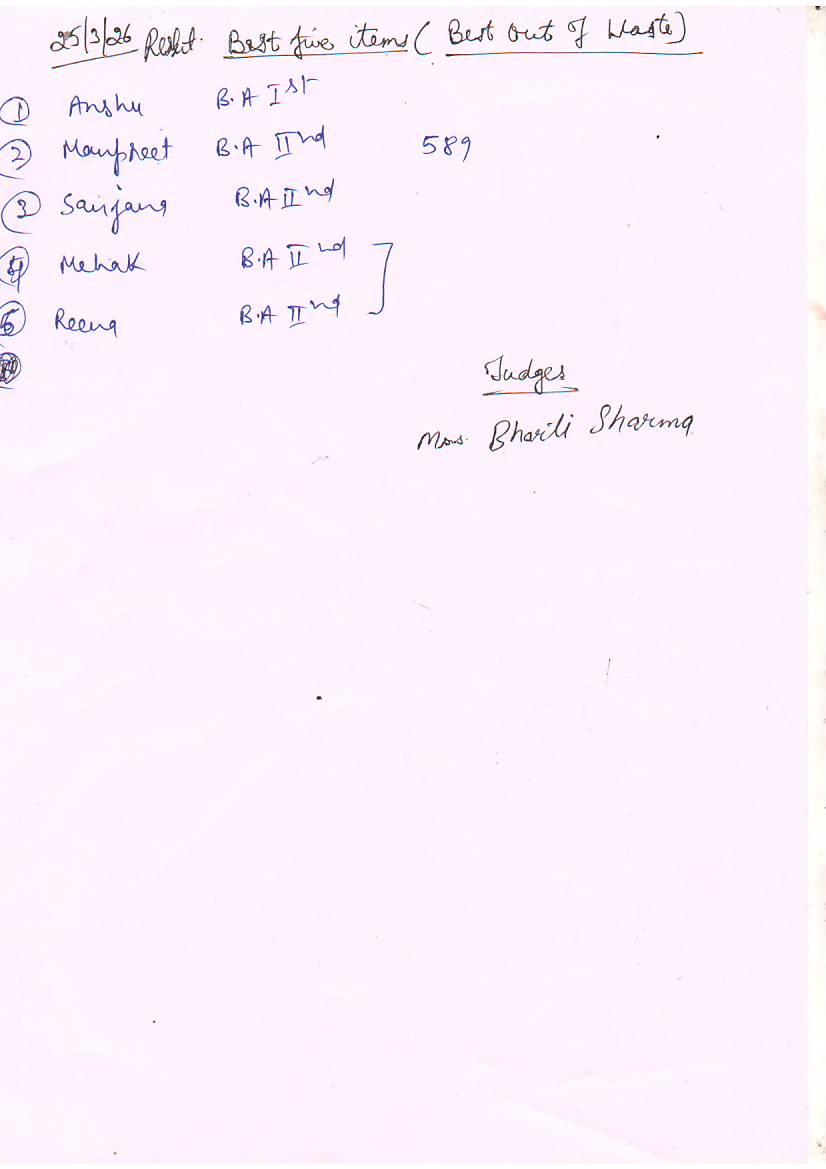 25/3/26 Result. Best five items (Best out of Waste)
① Anshu B.A Ist
② Manpreet B.A IInd 589
③ Sanjana B.A IInd
④ Mehak B.A IInd ]
⑤ Reena B.A IInd
Judges
Mrs. Sharma